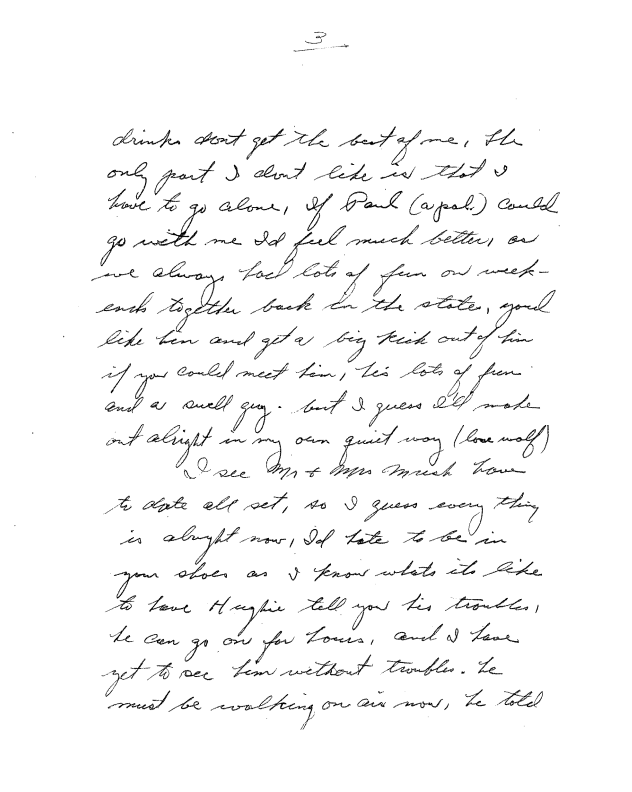 3
drinks dont get the best of me, the
only part I dont like is that I
have to go alone, If Paul (a pal.) could
go with me Id feel much better, as
we always had lots of fun on week-
ends together back in the states, youd
like him and get a big kick out of him
if you could meet him, his lots of fun
and a swell guy. but I guess I'll make
out alright in my own quiet way (lone wolf)
I see Mr + Mrs Mush have
to date all set, so I guess every thing
is alright now, Id hate to be in
your shoes as I know whats its like
to have Hughie tell you his troubles,
he can go on for hours, and I have
yet to see him without troubles. he
must be walking on air now, he told